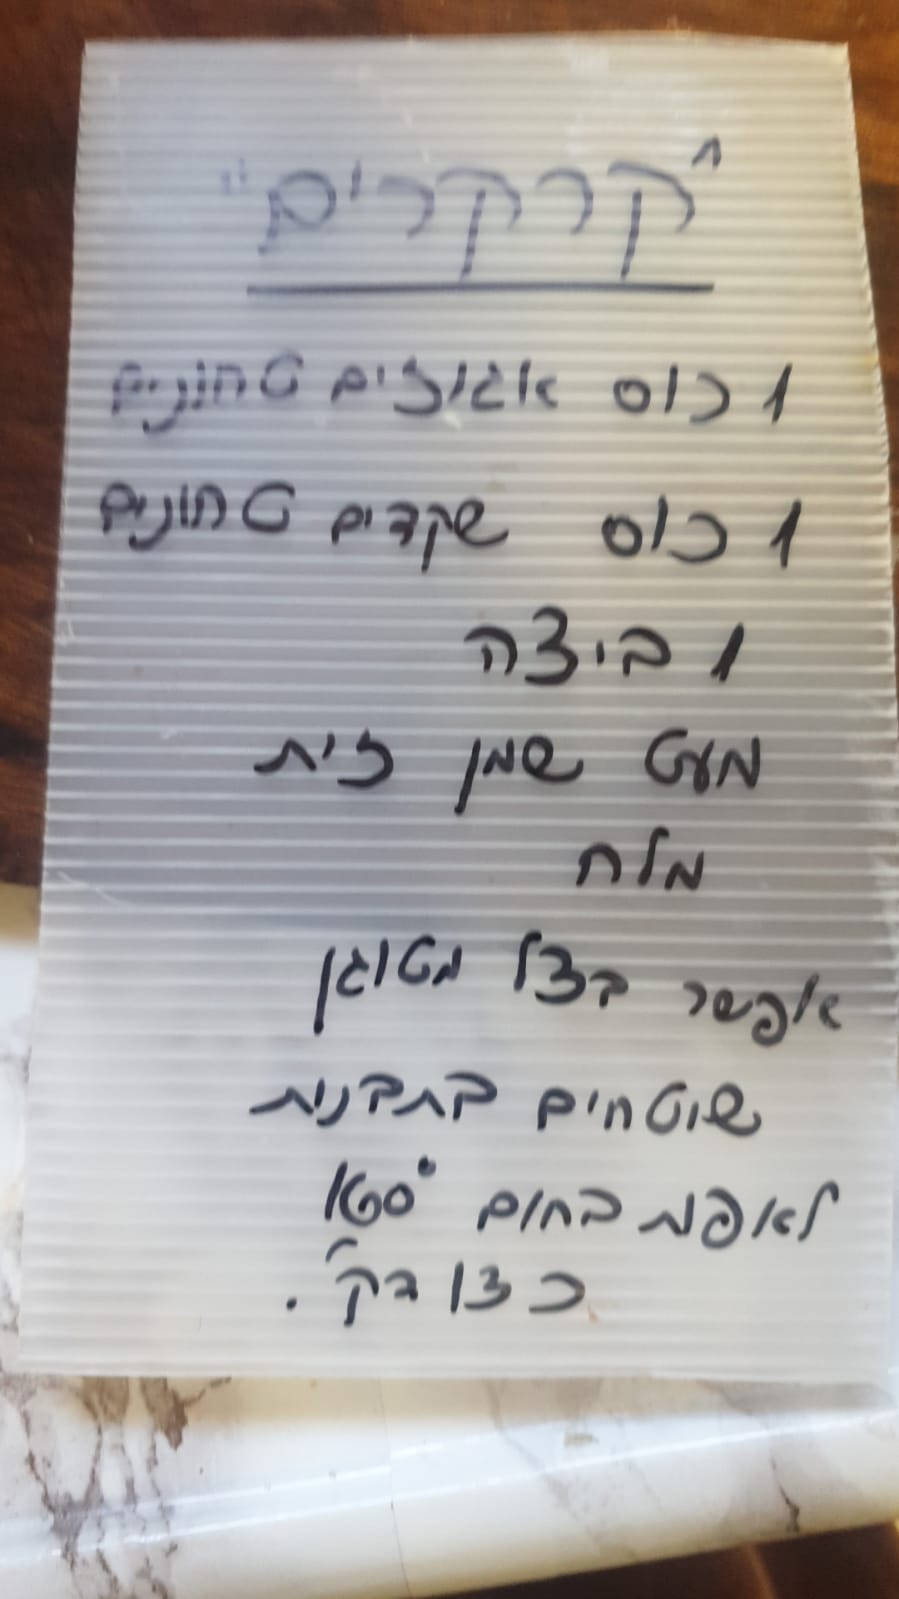 "קרקרים"
1 כוס אגוזים טחונים
1 כוס שקדים טחונים
1 ביצה
מעט שמן זית
מלח
אפשר בצל מטוגן
שוטחים בתבנית
לאפות בחום °160
כ דק'.